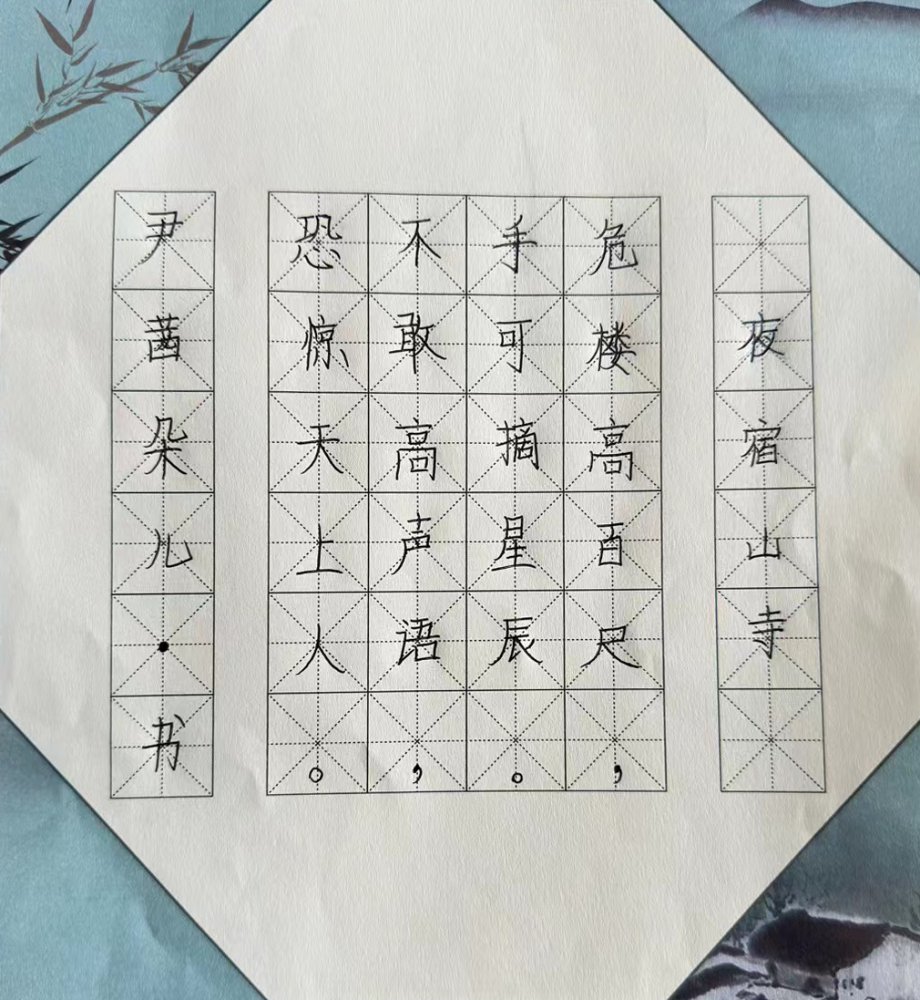 夜宿山寺
危楼高百尺，
手可摘星辰。
不敢高声语，
恐惊天上人。
尹茜朵儿·书